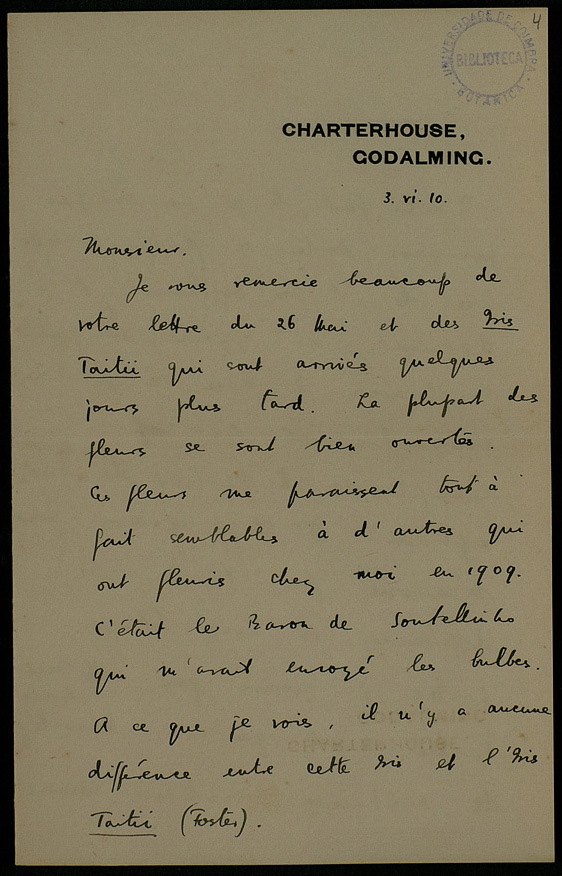 4
UNIVERSIDADE DE COIMBRA
BIBLIOTECA
BOTANICA
CHARTERHOUSE,
GODALMING.
3. vi. 10.
Monsieur.
Je vous remercie beaucoup de
votre lettre du 26 Mai et des Iris
Taitii qui sont arrivés quelques
jours plus tard. La plupart des
fleurs se sont bien ouvertes.
Ces fleurs me paraissent tout à
fait semblables à d'autres qui
ont fleuris chez moi en 1909.
C'était le Baron de Soutellinho
qui m'avait envoyé les bulbes.
A ce que je vois, il n'y a aucune
différence entre cette Iris et l'Iris
Taitii (Foster).